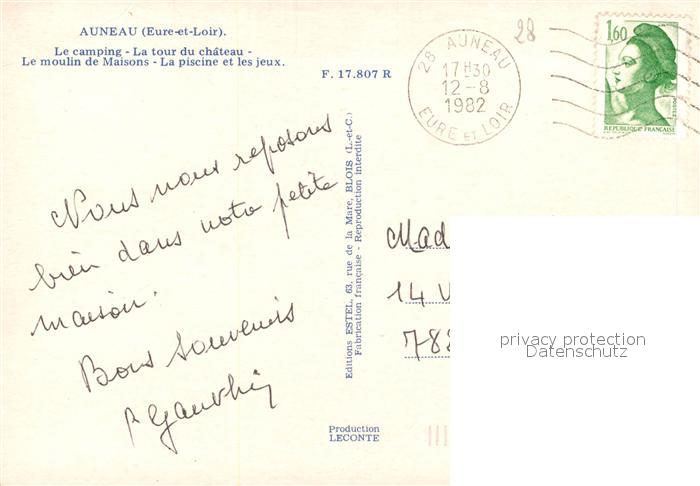 AUNEAU (Eure-et-Loir).
Le camping - La tour du château -
Le moulin de Maisons - La piscine et les jeux.
F. 17.807 R
28
28 AUNEAU
17H30
12-8
1982
EURE ET LOIR
1,60
REPUBLIQUE FRANÇAISE
Nous nous reposons
bien dans notre petite
maison.
Bons Souvenirs
Editions ESTEL, 63, rue de la Mare, BLOIS (L.-et-C.)
Fabrication française - Reproduction interdite
Mad
14 V
782
privacy protection
Datenschutz
Production
LECONTE